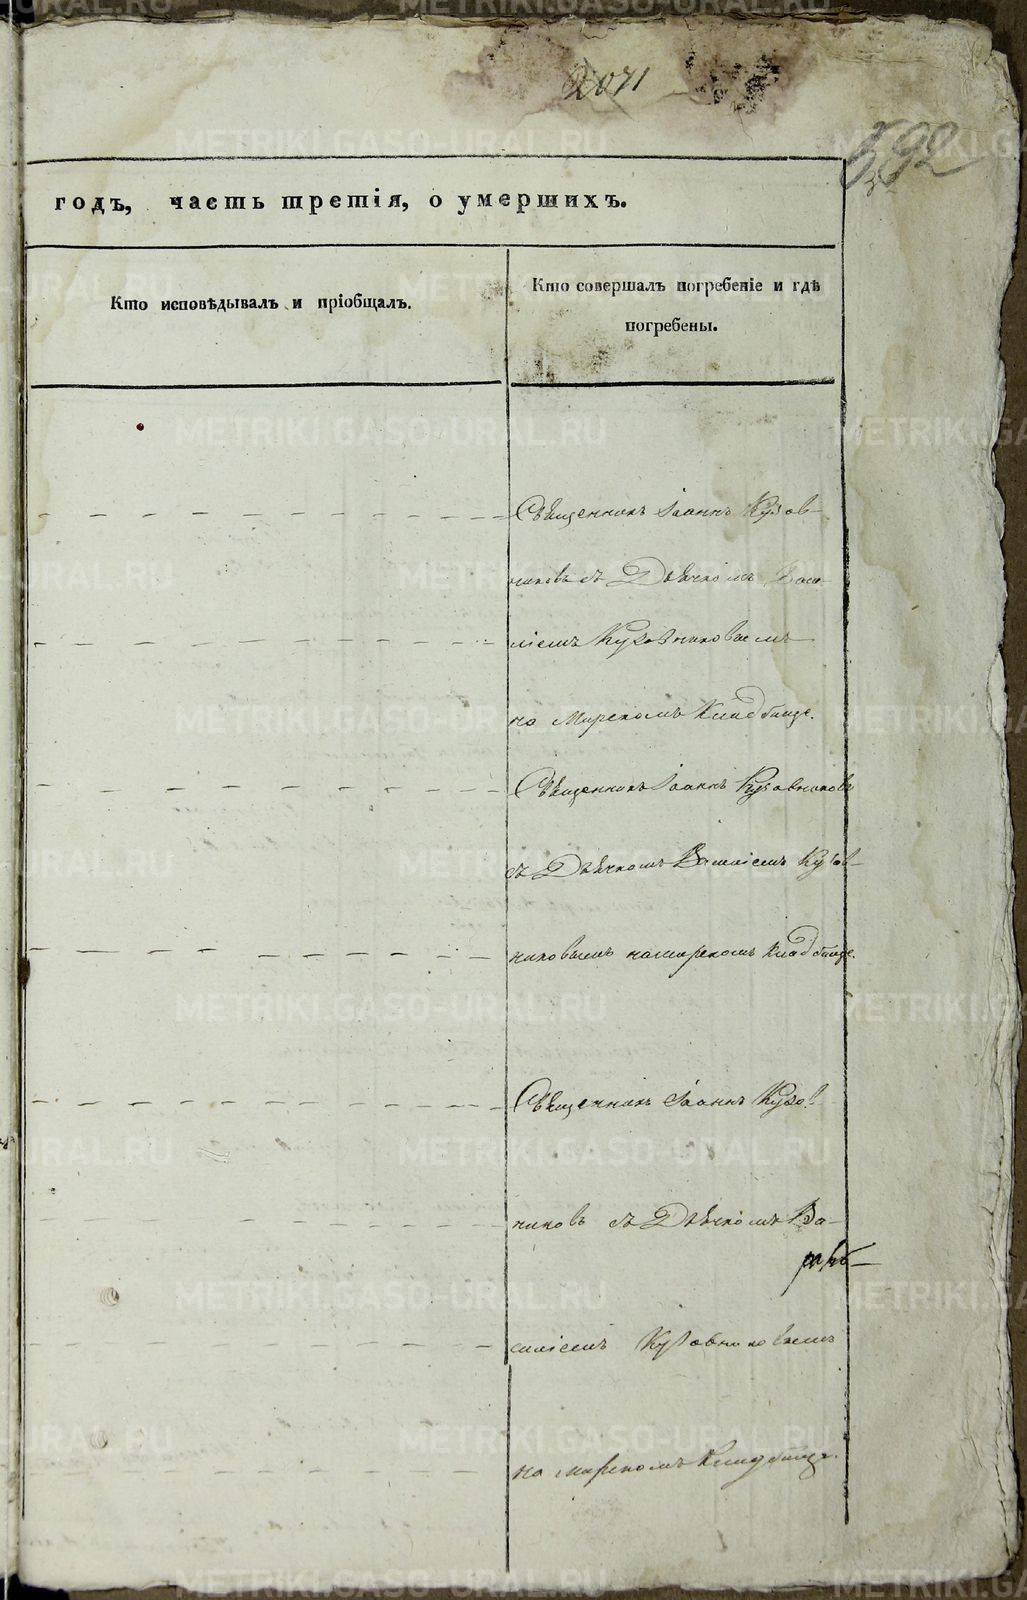 2071
592
годъ, часть третія, о умершихъ.
Кто исповѣдывалъ и пріобщалъ.
Кто совершалъ погребеніе и гдѣ
погребены.
Священникъ Іоаннъ Кузов-
никовъ съ Дьячкомъ Васи-
ліемъ Кузовниковымъ
на Мирскомъ Кладбище.
Священникъ Іоаннъ Кузовниковъ
съ Дьячкомъ Василіемъ Кузов-
никовымъ на мирскомъ Кладбище.
Священникъ Іоаннъ Кузов-
никовъ съ Дьячкомъ Ва-
силіемъ Кузовниковымъ
на мирскомъ Кладбище.
METRIKI.GASO-URAL.RU